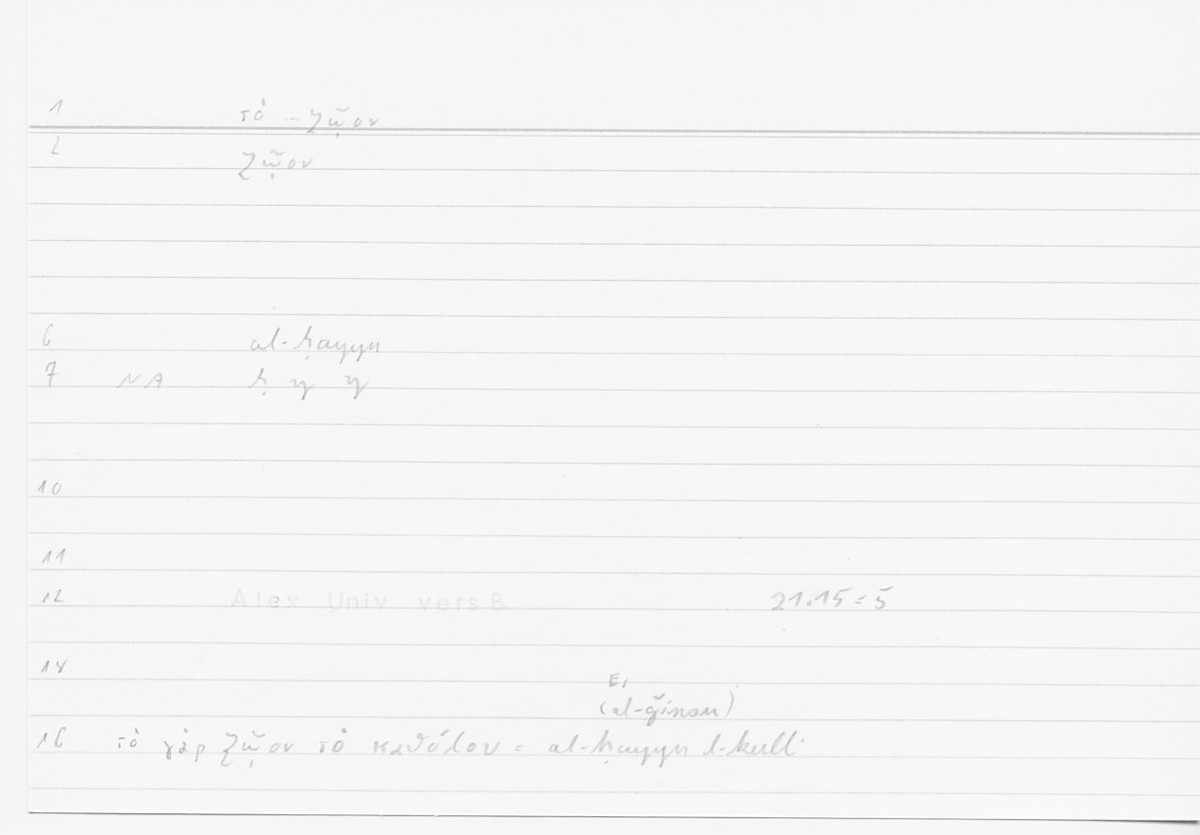 1 τὸ – ζῷον
2 ζῷον
6 al-ḥayyu
7 NA ḥ y y
10
11
12 Alex Univ vers B 21.15 = 5
14
(al-ǧinsu)
16 τὸ γὰρ ζῷον τὸ καθόλου = al-ḥayyu l-kullī